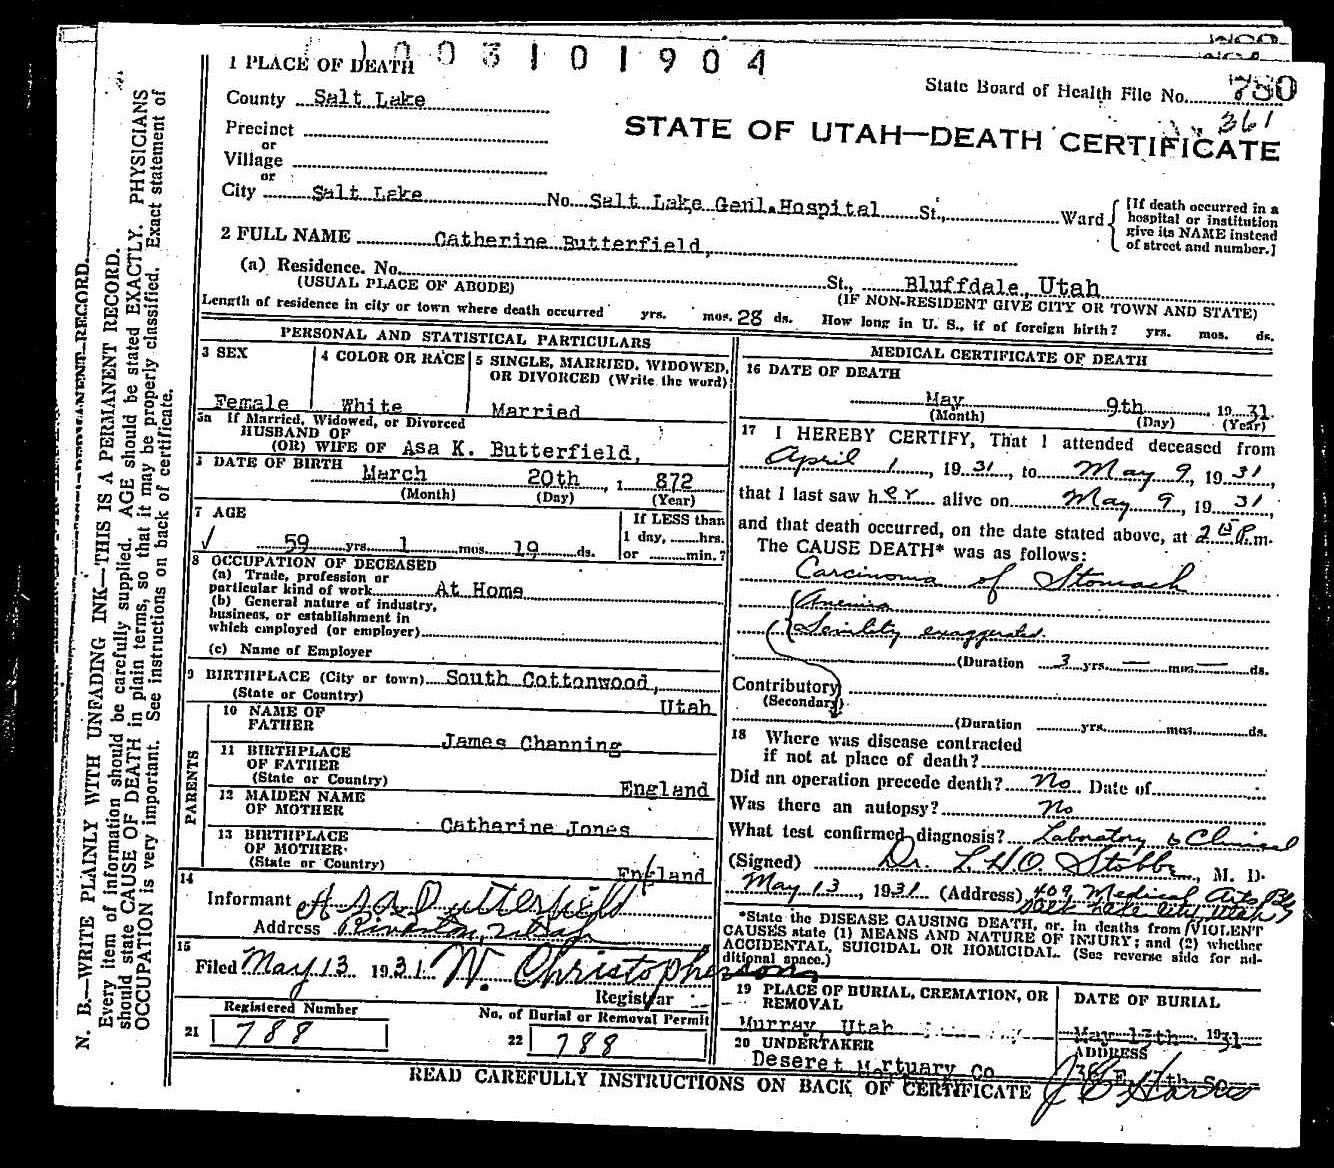 1003101904
1 PLACE OF DEATH
State Board of Health File No. 780
361
County Salt Lake
STATE OF UTAH—DEATH CERTIFICATE
Precinct
or
Village
or
City Salt Lake No. Salt Lake Genl. Hospital St., Ward
[If death occurred in a hospital or institution give its NAME instead of street and number.]
2 FULL NAME Catherine Butterfield,
(a) Residence. No. St., Bluffdale, Utah
(USUAL PLACE OF ABODE) (IF NON-RESIDENT GIVE CITY OR TOWN AND STATE)
Length of residence in city or town where death occurred yrs. mos. 28 ds. How long in U. S., if of foreign birth? yrs. mos. ds.
PERSONAL AND STATISTICAL PARTICULARS
3 SEX
Female
4 COLOR OR RACE
White
5 SINGLE, MARRIED, WIDOWED, OR DIVORCED (Write the word)
Married
5a If Married, Widowed, or Divorced
HUSBAND OF
(OR) WIFE OF Asa K. Butterfield,
DATE OF BIRTH March 20th, 1 872
(Month) (Day) (Year)
7 AGE
59 yrs. 1 mos. 19 ds.
If LESS than
1 day, hrs.
or min.?
8 OCCUPATION OF DECEASED
(a) Trade, profession or
particular kind of work At Home
(b) General nature of industry,
business, or establishment in
which employed (or employer)
(c) Name of Employer
9 BIRTHPLACE (City or town) South Cottonwood,
(State or Country) Utah
PARENTS
10 NAME OF
FATHER James Channing
11 BIRTHPLACE
OF FATHER
(State or Country) England
12 MAIDEN NAME
OF MOTHER Catherine Jones
13 BIRTHPLACE
OF MOTHER
(State or Country) England
14
Informant Asa Butterfield
Address Riverton, Utah
15
Filed May 13 1931 W. Christopherson
Registrar
Registered Number
21 788
No. of Burial or Removal Permit
22 788
MEDICAL CERTIFICATE OF DEATH
16 DATE OF DEATH
May 9th, 1931
(Month) (Day) (Year)
17 I HEREBY CERTIFY, That I attended deceased from
April 1, 1931, to May 9, 1931,
that I last saw her alive on May 9, 1931,
and that death occurred, on the date stated above, at 2 15 P.m.
The CAUSE DEATH* was as follows:
Carcinoma of Stomach
Anemia
Senility exaggerated.
(Duration 3 yrs. — mos. — ds.
Contributory
(Secondary)
(Duration yrs. mos. ds.
18 Where was disease contracted
if not at place of death?
Did an operation precede death? No Date of
Was there an autopsy? No
What test confirmed diagnosis? Laboratory & Clinical
(Signed) Dr. L.H.O. Stobbe, M. D.
May 13, 1931 (Address) 409 Medical Arts Bldg
Salt Lake City, Utah
*State the DISEASE CAUSING DEATH, or, in deaths from VIOLENT
CAUSES state (1) MEANS AND NATURE OF INJURY; and (2) whether
ACCIDENTAL, SUICIDAL OR HOMICIDAL. (See reverse side for ad-
ditional space.)
19 PLACE OF BURIAL, CREMATION, OR
REMOVAL
Murray, Utah
DATE OF BURIAL
May 13th 1931
20 UNDERTAKER
Deseret Mortuary Co
ADDRESS
36 E. 7th So.
READ CAREFULLY INSTRUCTIONS ON BACK OF CERTIFICATE
N. B.—WRITE PLAINLY WITH UNFADING INK—THIS IS A PERMANENT RECORD.
Every item of information should be carefully supplied. AGE should be stated EXACTLY. PHYSICIANS
should state CAUSE OF DEATH in plain terms, so that it may be properly classified. Exact statement of
OCCUPATION is very important. See instructions on back of certificate.